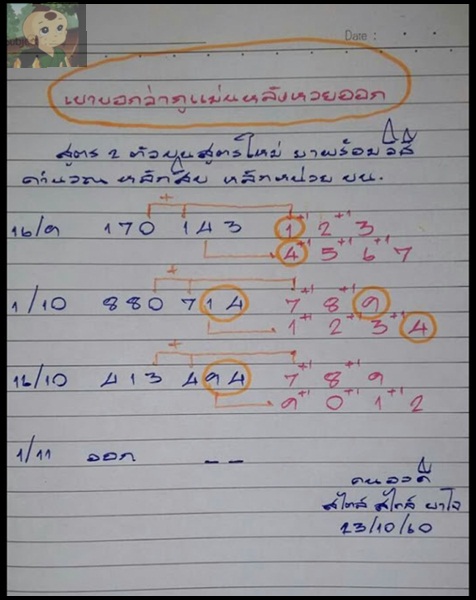 Date :
เขาบอกว่ากูแม่นหลังหวยออก
สูตร 2 ตัวบนสูตรใหม่ มาพร้อมวิธี
คำนวณ หลักสิบ หลักหน่วย บน.
+
16/9 170 143 1 +1 2 +1 3
4 +1 5 +1 6 +1 7
+
1/10 880 714 7 +1 8 +1 9
1 +1 2 +1 3 +1 4
+
16/10 413 494 7 +1 8 +1 9
9 +1 0 +1 1 +1 2
1/11 ออก _ _
คนอวดดี
สไตล์ สไตล์ ยาใจ
23/10/60